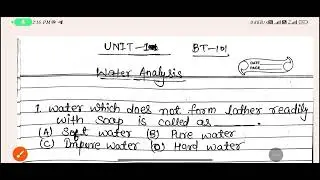 2:16 PM
UNIT-1 BT-101
DATE
PAGE
Water Analysis
1. Water which does not form lather readily
with soap is called as ______.
(A) Soft water (B) Pure water
(C) Impure water (D) Hard water